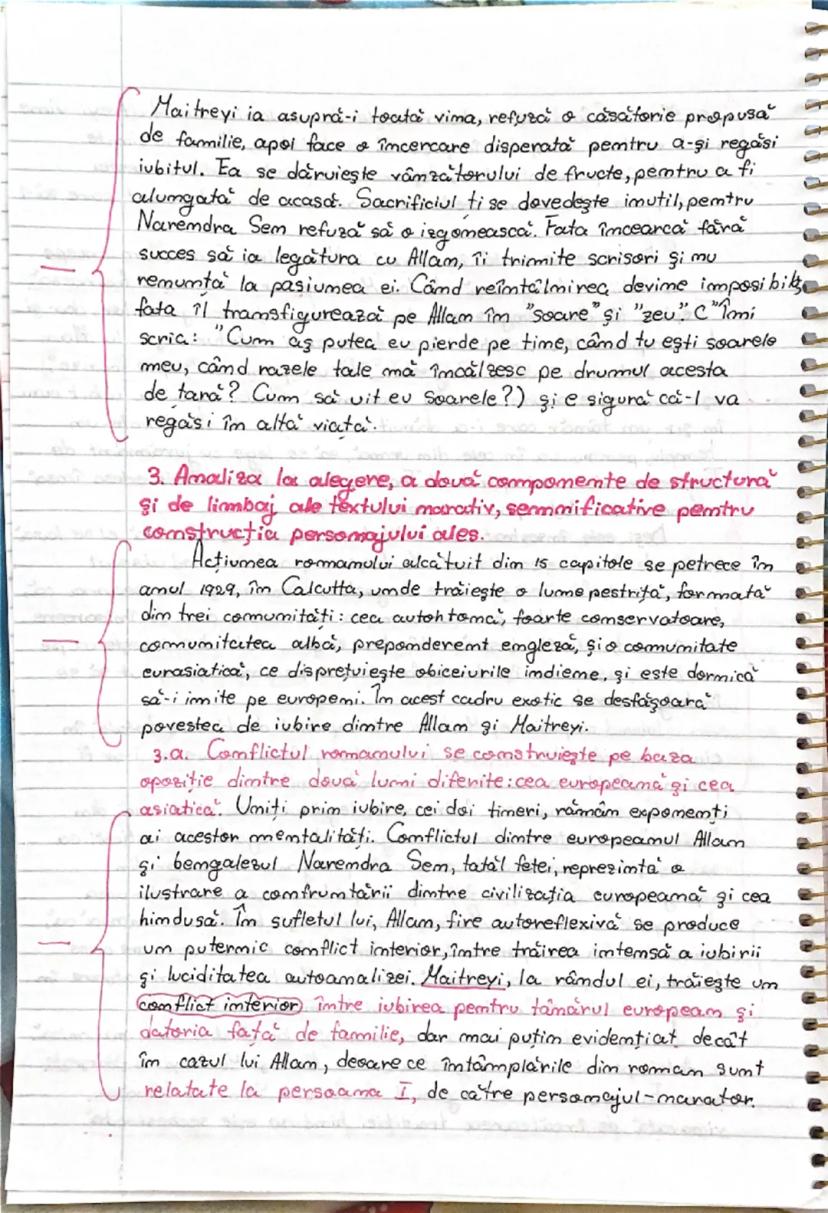 Maitreyi ia asupră-i toată vina, refuză o căsătorie propusă
de familie, apoi face o încercare disperată pentru a-şi regăsi
iubitul. Ea se dăruieşte vânzătorului de fructe, pentru a fi
alungată de acasă. Sacrificiul ti se dovedeşte inutil, pentru
Narendra Sen refuză să o izgonească. Fata încearcă fără
succes să ia legătura cu Allan, îi trimite scrisori şi nu
renunţă la pasiunea ei. Când reîntâlnirea devine imposibilă,
fata îl transfigurează pe Allan în "soare" şi "zeu". C "Îmi
scria: "Cum aş putea eu pierde pe tine, când tu eşti soarele
meu, când razele tale mă încălzesc pe drumul acesta
de ţară? Cum să uit eu soarele?) şi e sigură că-l va
regăsi în altă viaţă.
3. Analiza la alegere, a două componente de structură
şi de limbaj ale textului narativ, semnificative pentru
construcţia personajului ales.
Acţiunea romanului alcătuit din 15 capitole se petrece în
anul 1929, în Calcutta, unde trăieşte o lume pestriţă, formată
din trei comunităţi: cea autohtonă, foarte conservatoare,
comunitatea albă, preponderent engleză, şi o comunitate
eurasiatică, ce dispreţuieşte obiceiurile indiene, şi este dornică
să-i imite pe europeni. În acest cadru exotic se desfăşoară
povestea de iubire dintre Allan şi Maitreyi.
3.a. Conflictul romanului se construieşte pe baza
opoziţie dintre două lumi diferite: cea europeană şi cea
asiatică. Uniţi prin iubire, cei doi tineri, rămân exponenţi
ai acestor mentalităţi. Conflictul dintre europeanul Allan
şi bengalezul Narendra Sen, tatăl fetei, reprezintă o
ilustrare a confruntării dintre civilizaţia europeană şi cea
hindusă. În sufletul lui, Allan, fire autoreflexivă se produce
un puternic conflict interior, între trăirea intensă a iubirii
şi luciditatea autoanalizei. Maitreyi, la rândul ei, trăieşte un
conflict interior între iubirea pentru tânărul european şi
datoria faţă de familie, dar mai puţin evidenţiat decât
în cazul lui Allan, deoarece întâmplările din roman sunt
relatate la persoana I, de către personajul-narator.